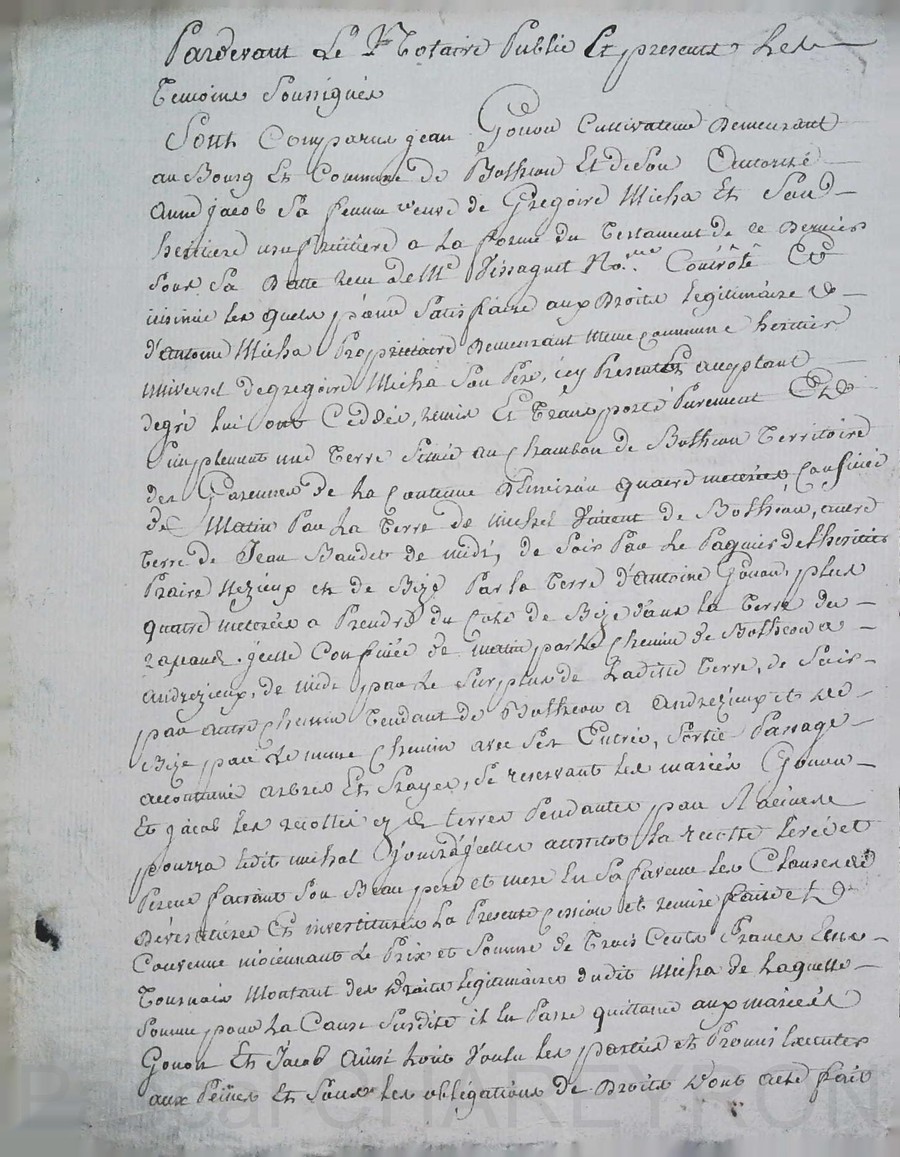 Pardevant Le Notaire Public Et presents Les
Temoins Soussignés
Sont Comparus jean Gonon Cultivateur Demeurant
au Bourg Et Commune de Bothéon Et de Son Autorité
Anne jacob Sa femme veuve de Gregoire Micha Et Son
heritiere usufruitiere a La forme du Testament de ce Dernier
Sous Sa Datte recu de Me Not.re Contrôlé Et
insinué les quels pour Satisfaire aux Droits Legitimaire
d'Antoine Micha Proprietaire Demeurant meme commune heritier
universel de gregoire Micha Son Pere, icy Present acceptant
degré lui ont Ceddé, remis Et Transporté Purement Et
Simplement une Terre Située au Chambon de Bothéon Territoire
des Garennes de La Contenue D'Environ quatre meterées Confinée
de Matin Par La Terre de michel Vincent de Bothéon, autre
terre de Jean Baudet de midi, de Soir Par Le Paquier de
Praire Nezieux et de Bize Par la Terre d'Antoine Gonon, plus
quatre meterées a Prendre du Coté de Bize dans la Terre du
jcelle Confinée de matin par Le Chemin de Bothéon a
Andrezieux, de midi par Le Surplus de Ladite Terre, de Soir
par autre Chemin Tendant de Bothéon a Andrezieux et de
Bize par Le meme Chemin avec Ses Entrée, Sortie Passage
accoutumé arbres Et, Se reservant les mariés Gonon
Et jacob les recoltes es terres Pendantes par Racines
pourra ledit michal jouir d'jcelles aussitot La recolte Levée et
Percue faisant Son Beau pere et mere En Sa faveur les Clauses de
Devestitures Et investitures La Presente Cession et remise faite et
Convenue moiennant Le Prix et Somme de Trois Cents Francs
Tournois Montant des Droits Legitimaires dudit Micha de Laquelle
Somme pour La Cause Susdite il En Passe quittance aux mariés
Gonon Et Jacob Ainsi L'ont Voulu Les parties et Promis Executer
aux Peines Et Sous Les obligations de Droits Dont acte fait
Pascal CHAREYRON